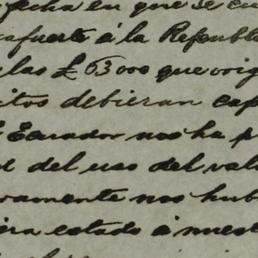 fecha en que se cu
afuerte á la Repúbl
las £ 63000 que orig
itos debieran cap
Ecuador nos ha p
del uso del val
vamente nos hub
era estado á nuest